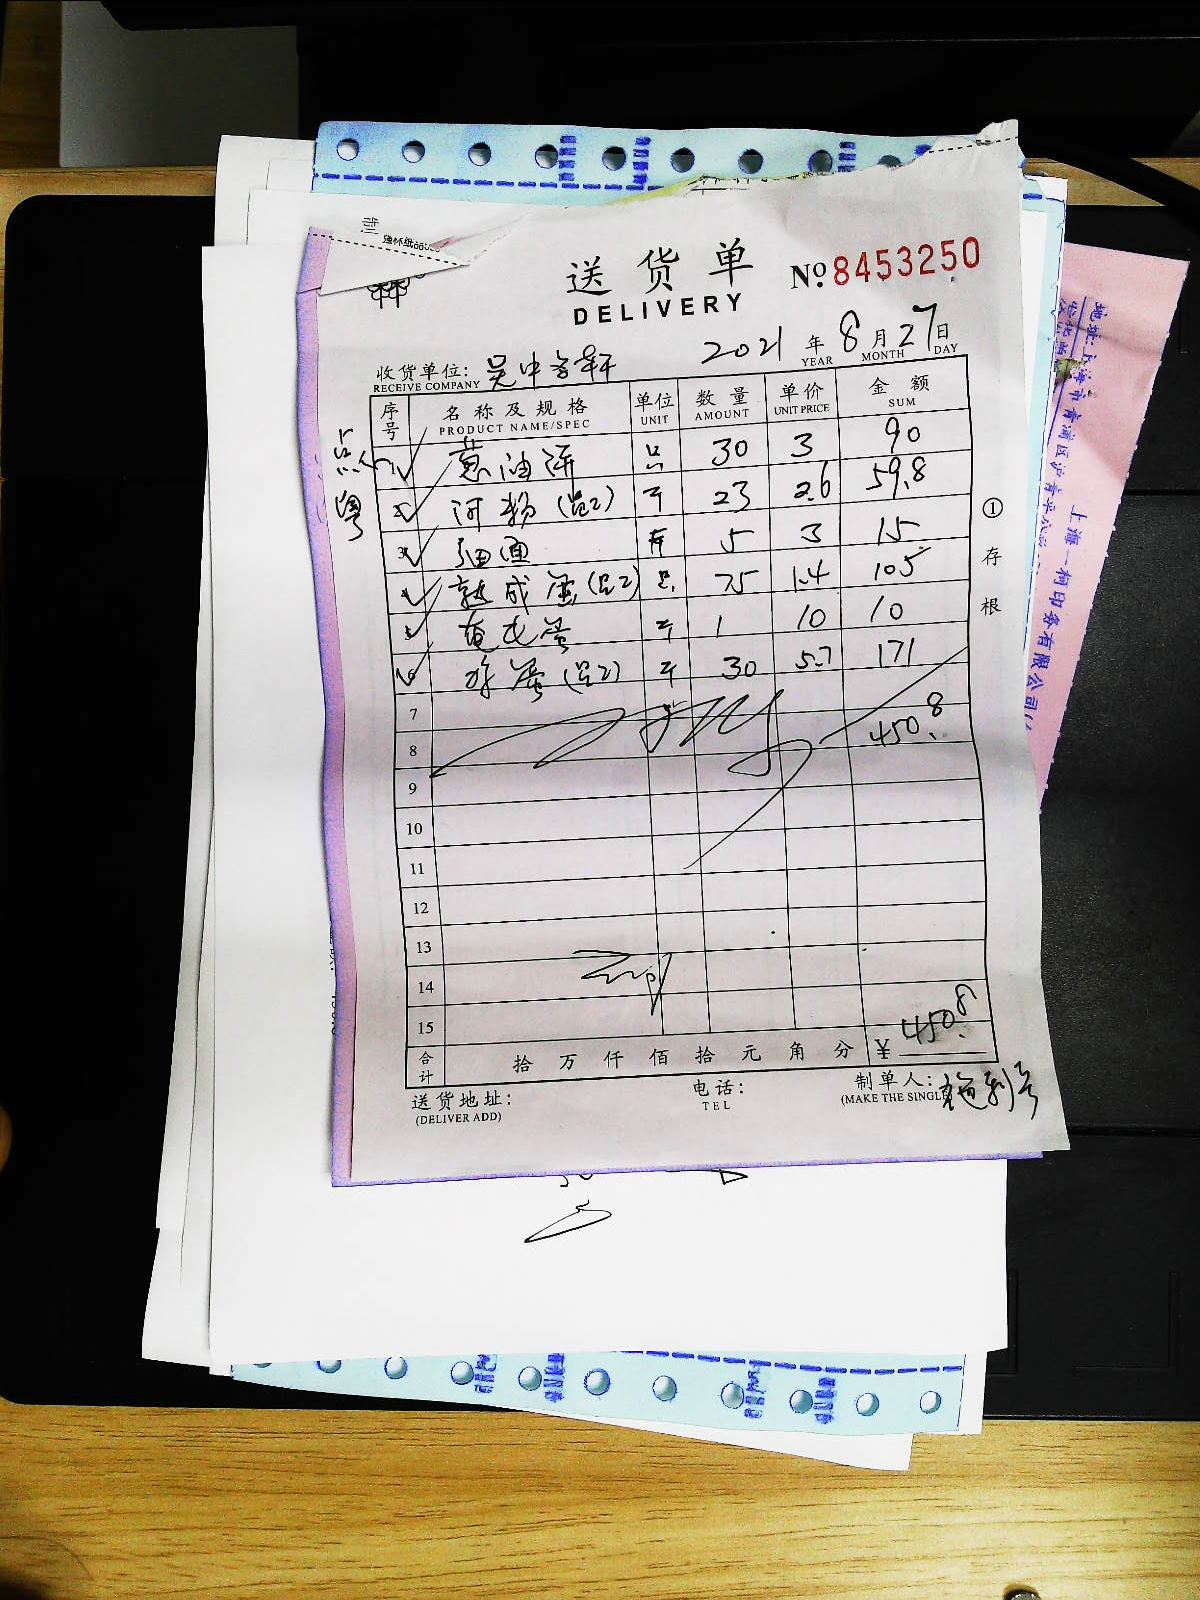 送货单
DELIVERY
№ 8453250
2021 年 8 月 27 日
YEAR MONTH DAY
收货单位: 吴中路轩
RECEIVE COMPANY
序号 名称及规格 单位 数量 单价 金额
PRODUCT NAME/SPEC UNIT AMOUNT UNIT PRICE SUM
点
粤
1 葱油饼 只 30 3 90
2 河粉(品2) 斤 23 2.6 59.8
3 5 3 15
4 熟咸蛋(品2) 只 75 1.4 105
5 斤 1 10 10
6 蛋(品2) 斤 30 5.7 171
7
8 450.8
9
10
11
12
13
14
15
合计 拾万仟佰拾元角分 ¥ 450.8
送货地址: 电话: 制单人:
(DELIVER ADD) TEL (MAKE THE SINGL
① 存根
上海一柯印务有限公司
地址:上海市青浦区沪青平公路